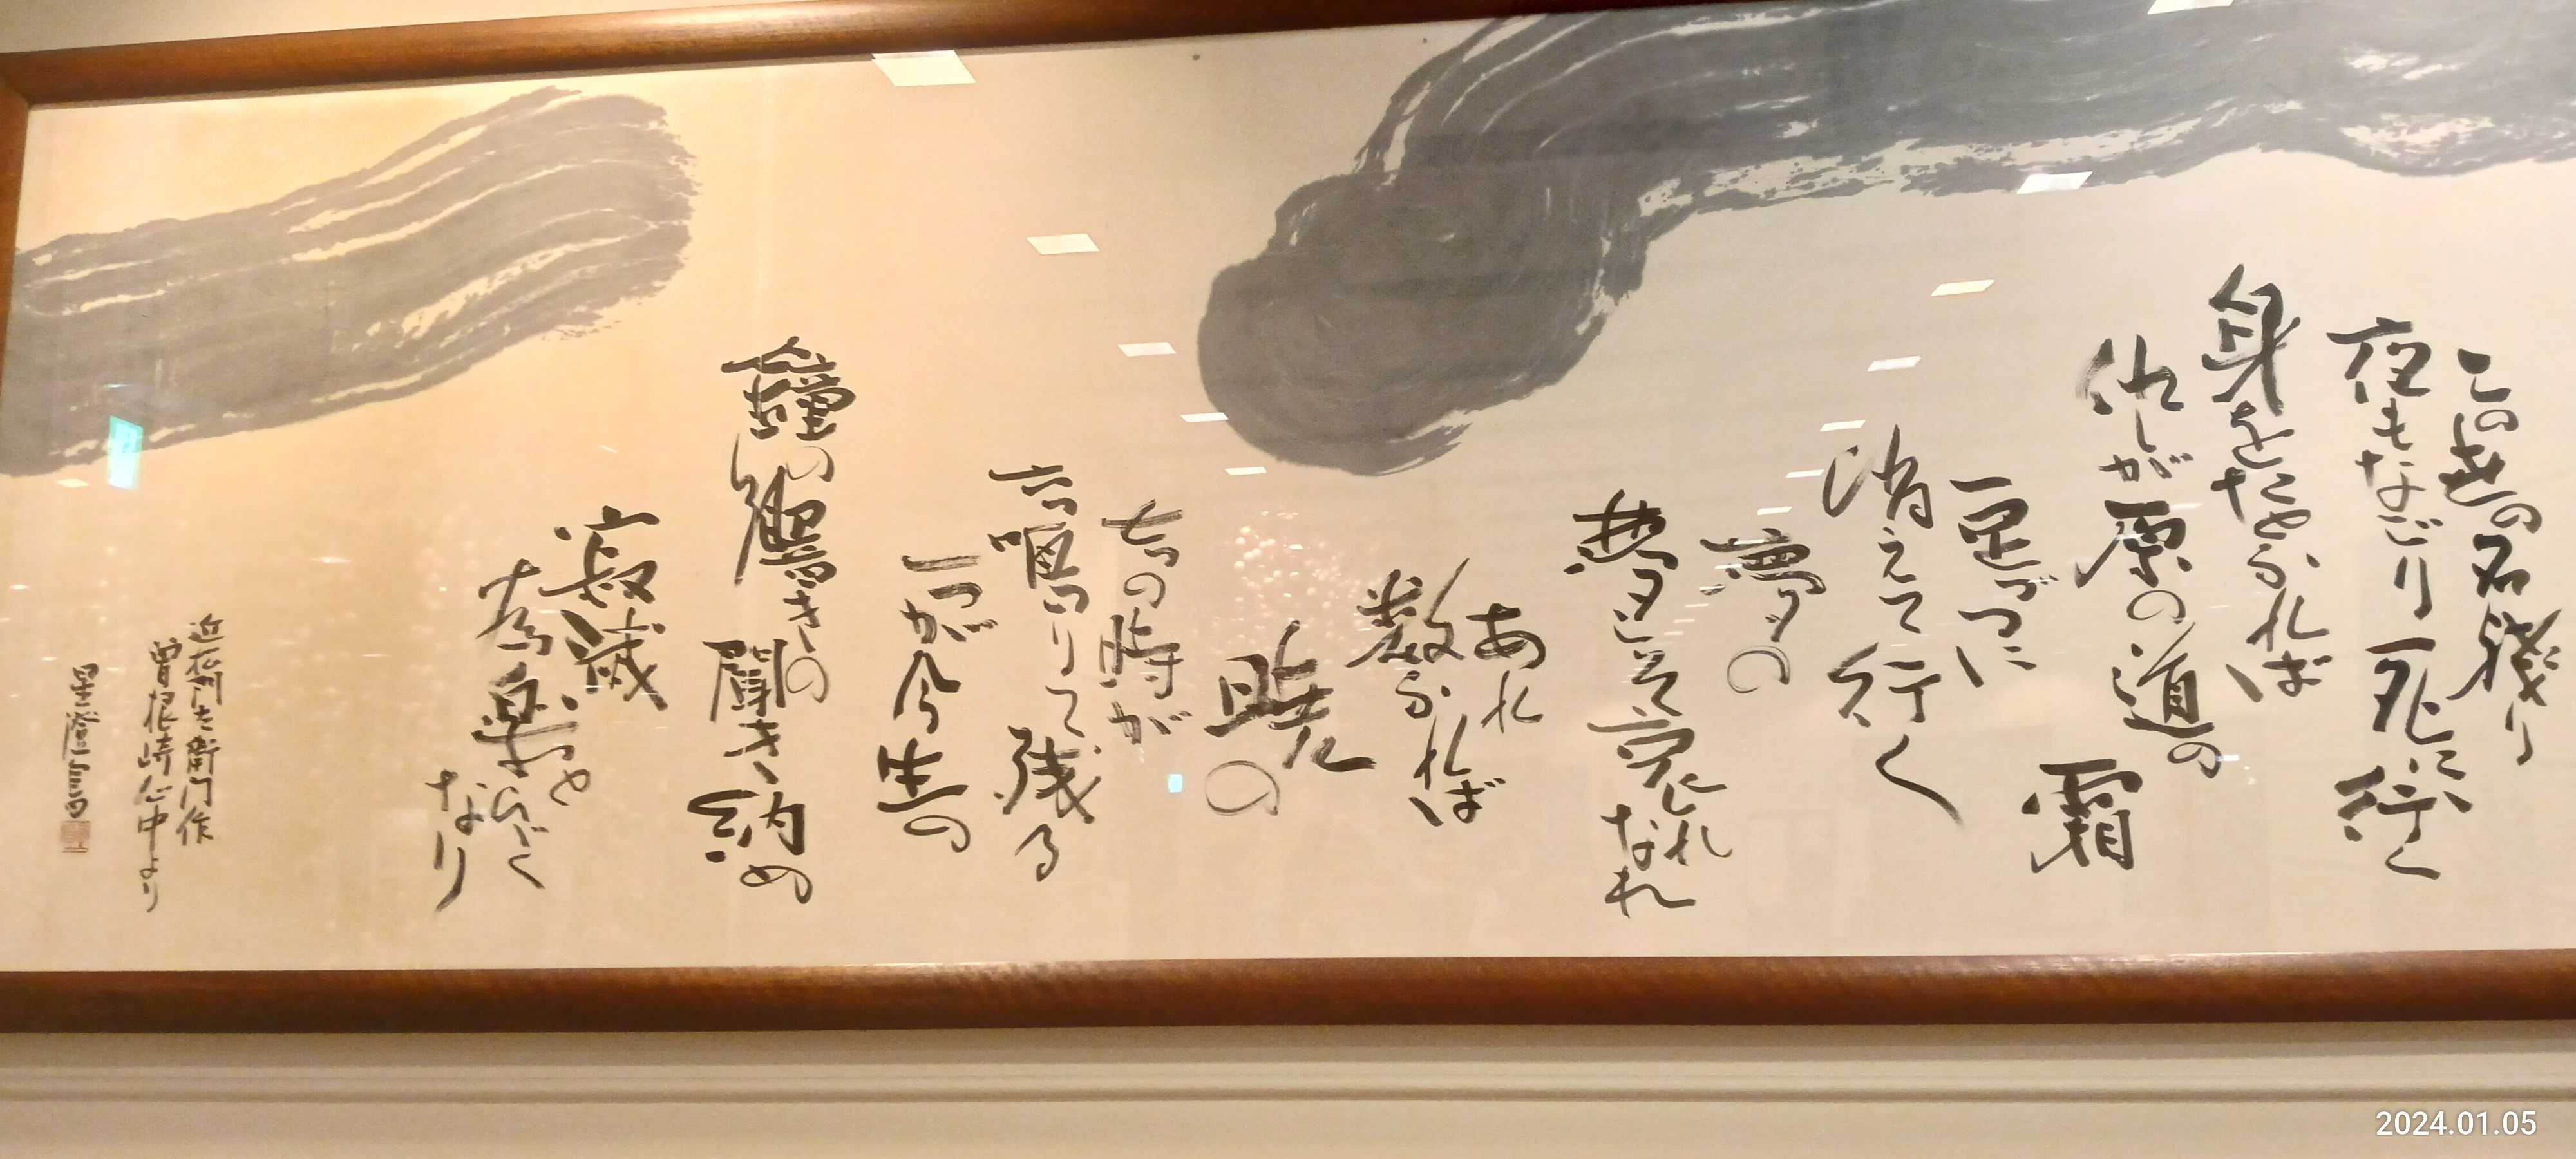 この世の名残り
夜もなごり死に行く
身をたとふれば
仇しが原の道の
霜
一足づつに
消えて行く
夢の
夢こそ哀れ
なれ
あれ
数ふれば
暁の
七つの時が
六つ鳴りて残る
一つが今生の
鐘の響きの
聞き納め
寂滅
為楽と
ひびく
なり
近松門左衛門作
曽根崎心中より
2024.01.05